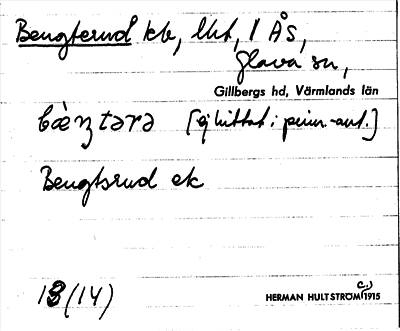 Bengterud kb, lht, 1 ÅS,
Glava sn,
Gillbergs hd, Värmlands län
bæ̀ŋtərə [ej hittat i prim.-ant.]
Bengtsrud ek
13(14)
HERMAN HULTSTRÖM 1915